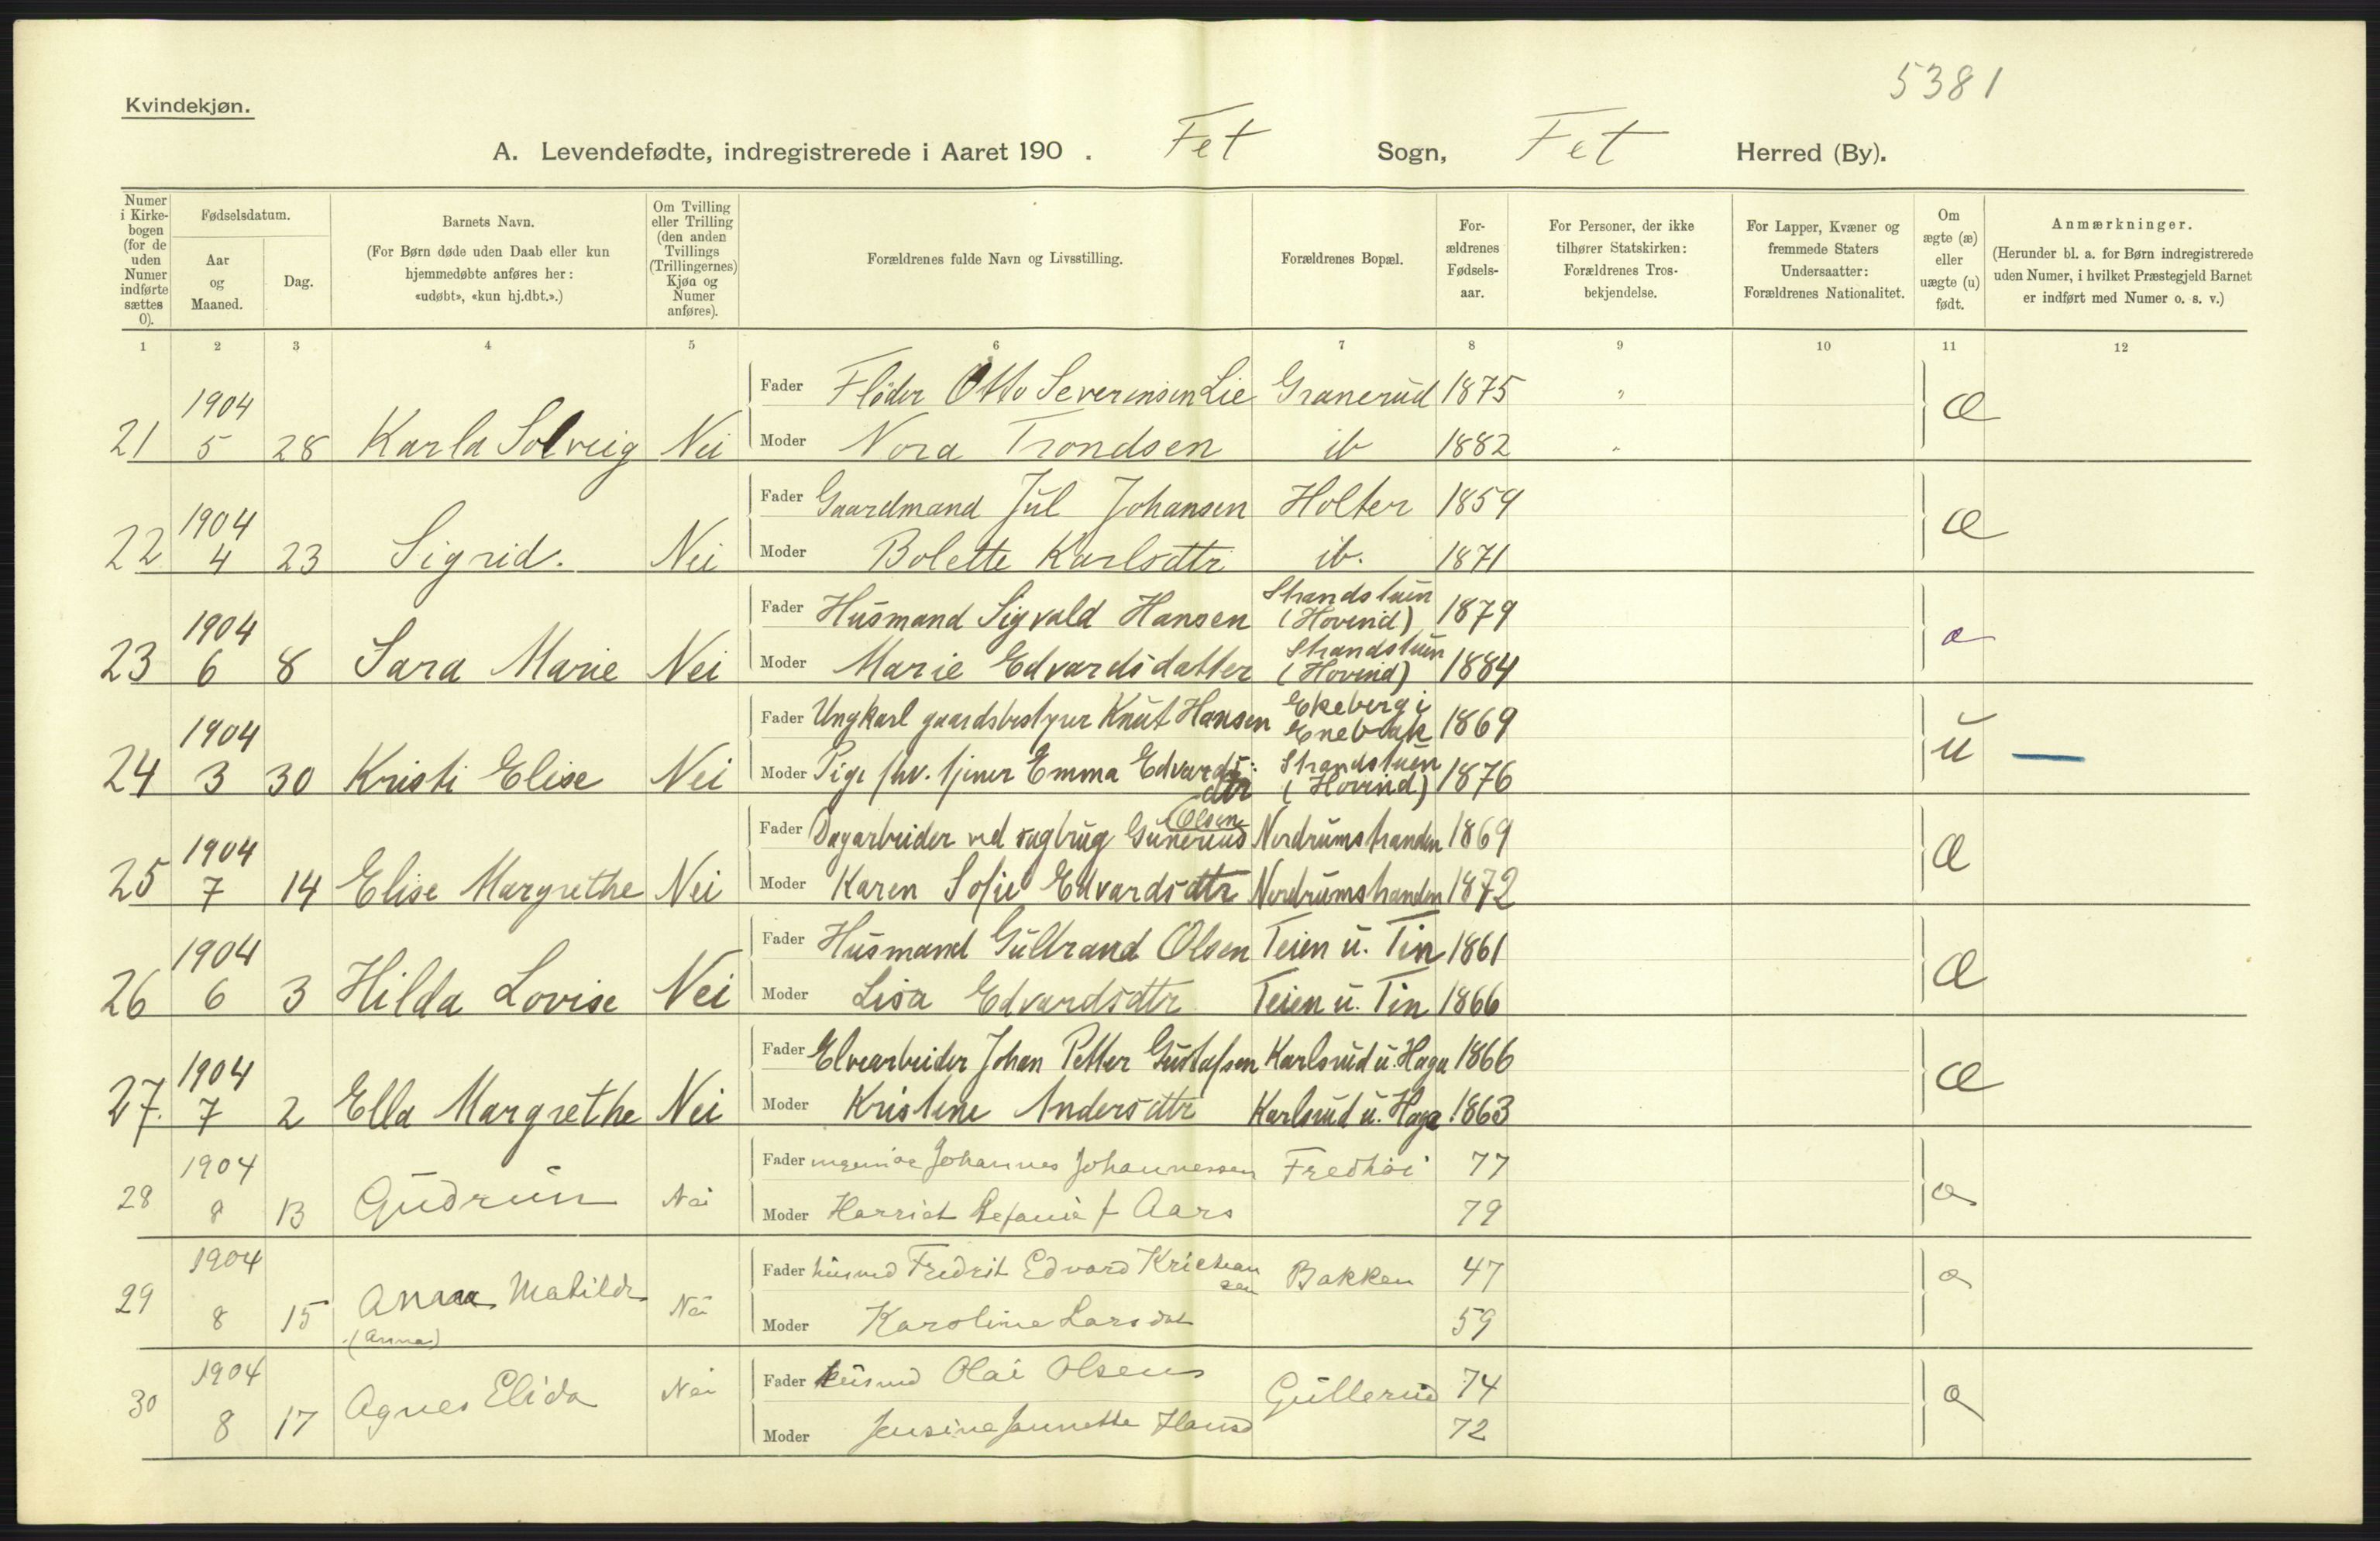 5381
Kvindekjøn.
A. Levendefødte, indregistrerede i Aaret 190 . Fet Sogn, Fet Herred (By).
Numer i Kirkebogen (for de uden Numer indførte sættes 0).
Fødselsdatum.
Aar og Maaned.
Dag.
Barnets Navn.
(For Børn døde uden Daab eller kun hjemmedøbte anføres her: «udøbt», «kun hj.dbt.».)
Om Tvilling eller Trilling (den anden Tvillings (Trillingernes) Kjøn og Numer anføres).
Forældrenes fulde Navn og Livsstilling.
Forældrenes Bopæl.
Forældrenes Fødselsaar.
For Personer, der ikke tilhører Statskirken: Forældrenes Trosbekjendelse.
For Lapper, Kvæner og fremmede Staters Undersaatter: Forældrenes Nationalitet.
Om ægte (æ) eller uægte (u) født.
Anmærkninger.
(Herunder bl. a. for Børn indregistrerede uden Numer, i hvilket Præstegjeld Barnet er indført med Numer o. s. v.)
1 2 3 4 5 6 7 8 9 10 11 12
1904 Fader Fløder Otto Severinsen Lie Granerud 1875 " æ
21 5 28 Karla Solveig Nei Moder Nora Trondsen ib 1882 "
1904 Fader Gaardmand Jul Johansen Holter 1859 æ
22 4 23 Sigrid. Nei Moder Bolette Karlsdtr ib. 1871
1904 Fader Husmand Sigvald Hansen Strandstuen (Hovind) 1879 æ
23 6 8 Sara Marie Nei Moder Marie Edvardsdatter Strandstuen (Hovind) 1884
1904 Fader Ungkarl gaardsbestyrer Knut Hansen Ekeberg i Enebak 1869 u —
24 3 30 Kristi Elise Nei Moder Pige hv. tjener Emma Edvards: dtr Strandstuen (Hovind) 1876
1904 Fader Dagarbeider ved sagbrug Gunerius Olsen Nordrumstranden 1869 æ
25 7 14 Elise Margrethe Nei Moder Karen Sofie Edvardsdtr Nordrumstranden 1872
1904 Fader Husmand Gulbrand Olsen Teien u. Tin 1861 æ
26 6 3 Hilda Lovise Nei Moder Lisa Edvardsdtr Teien u. Tin 1866
1904 Fader Elvearbeider Johan Petter Gustafsen Karlsrud u. Haga 1866 æ
27. 7 2 Ella Margrethe Nei Moder Kristine Andersdtr Karlsrud u. Haga 1863
1904 Fader ingeniør Johannes Johannessen Fredhöi 77 æ
28 8 13 Gudrun Nei Moder Harriet f Aars 79
1904 Fader husmd Fredrik Edvard Kristiansen Bakken 47 æ
29 8 15 Anna Matilde (Anna) Nei Moder Karoline Larsdat 59
1904 Fader husmd Olai Olsen Gullerud 74 æ
30 8 17 Agnes Elida Nei Moder Jensine Jeunette Hansd 72